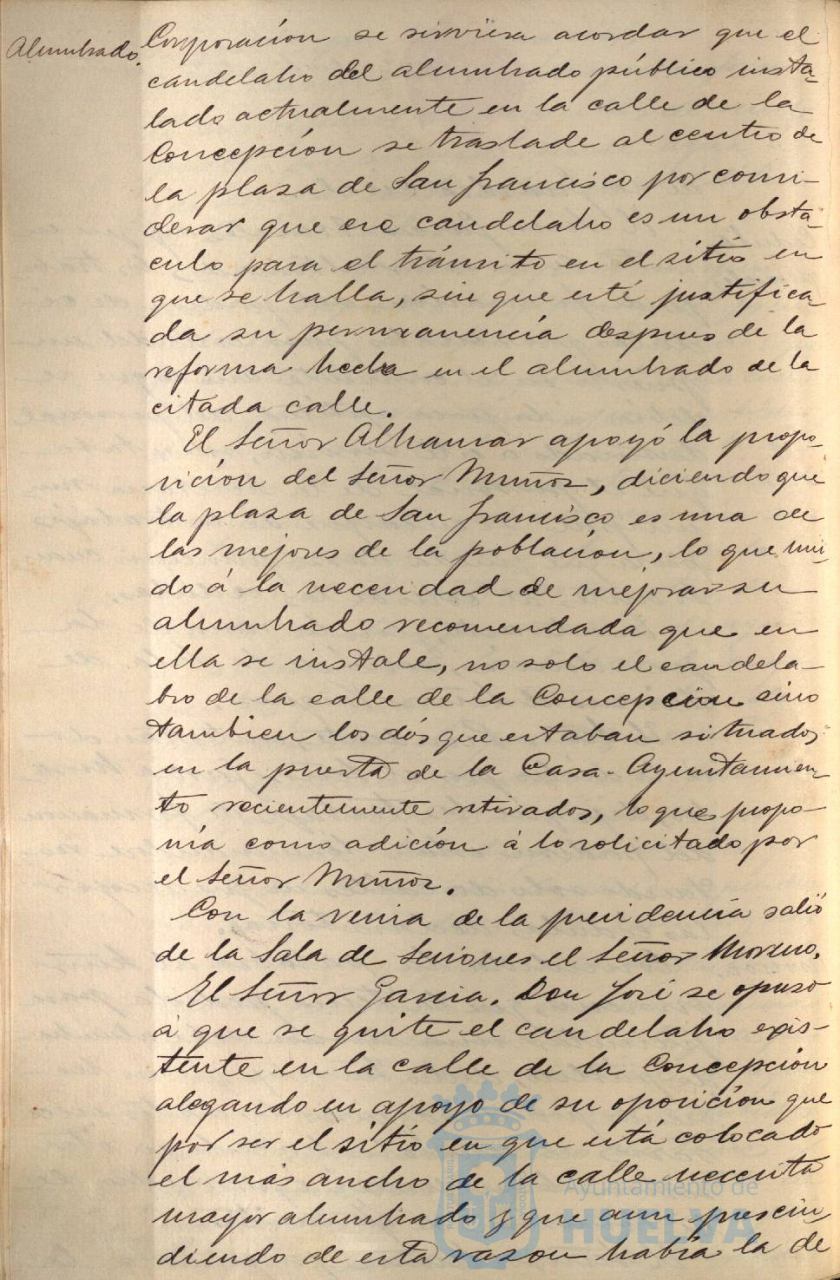 Alumbrado.
Corporación se sirviera acordar que el
candelabro del alumbrado público insta-
lado actualmente en la calle de la
Concepción se traslade al centro de
la plaza de San Francisco por consi-
derar que ese candelabro es un obstá-
culo para el tránsito en el sitio en
que se halla, sin que esté justifica-
da su permanencia despues de la
reforma hecha en el alumbrado de la
citada calle.
El Señor Alhamar apoyó la propo-
sición del Señor Muñoz, diciendo que
la plaza de San Francisco es una de
las mejores de la población, lo que uni-
do á la necesidad de mejorar su
alumbrado recomendada que en
ella se instale, no solo el candela-
bro de la calle de la Concepción sino
tambien los dós que estaban situados
en la puerta de la Casa-Ayuntamien-
to recientemente retirados, lo que propo-
nía como adición á lo solicitado por
el Señor Muñoz.
Con la venia de la presidencia salió
de la Sala de Sesiones el Señor Moreno.
El Señor Garcia. Don José se opuso
á que se quite el candelabro exis-
tente en la calle de la Concepción
alegando en apoyo de su oposición que
por ser el sitio en que está colocado
el más ancho de la calle necesita
mayor alumbrado y que aun prescin-
diendo de esta razon había la de
Ayuntamiento de
HUELVA